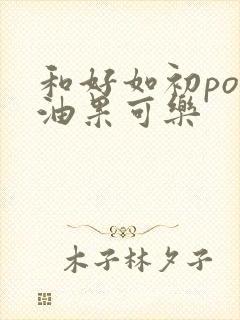 和好如初po
油果可樂
木子林夕子